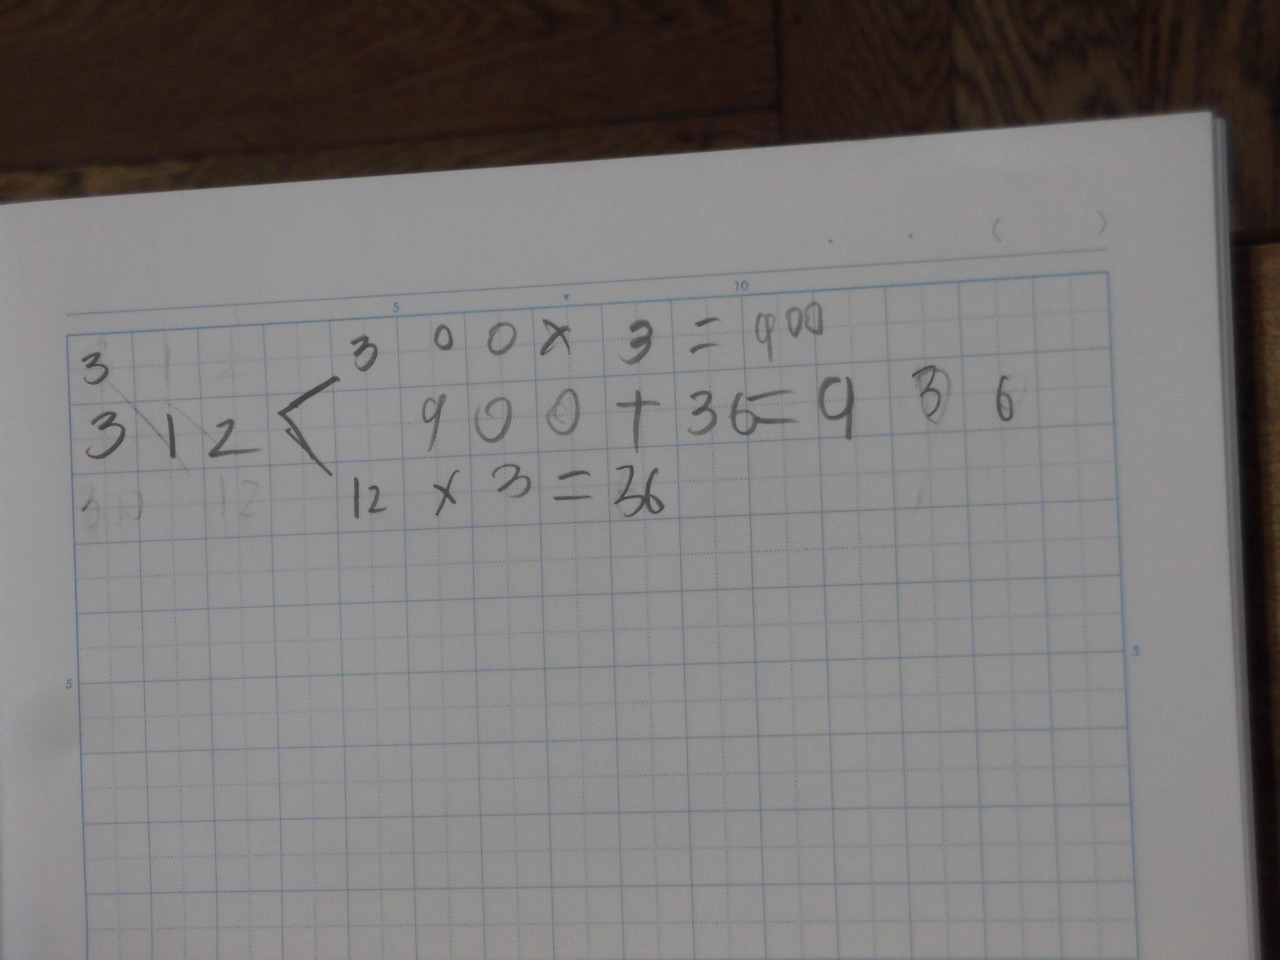 ( )
5 10
3 300×3=900
312< 900+36=936
12×3=36
5 5